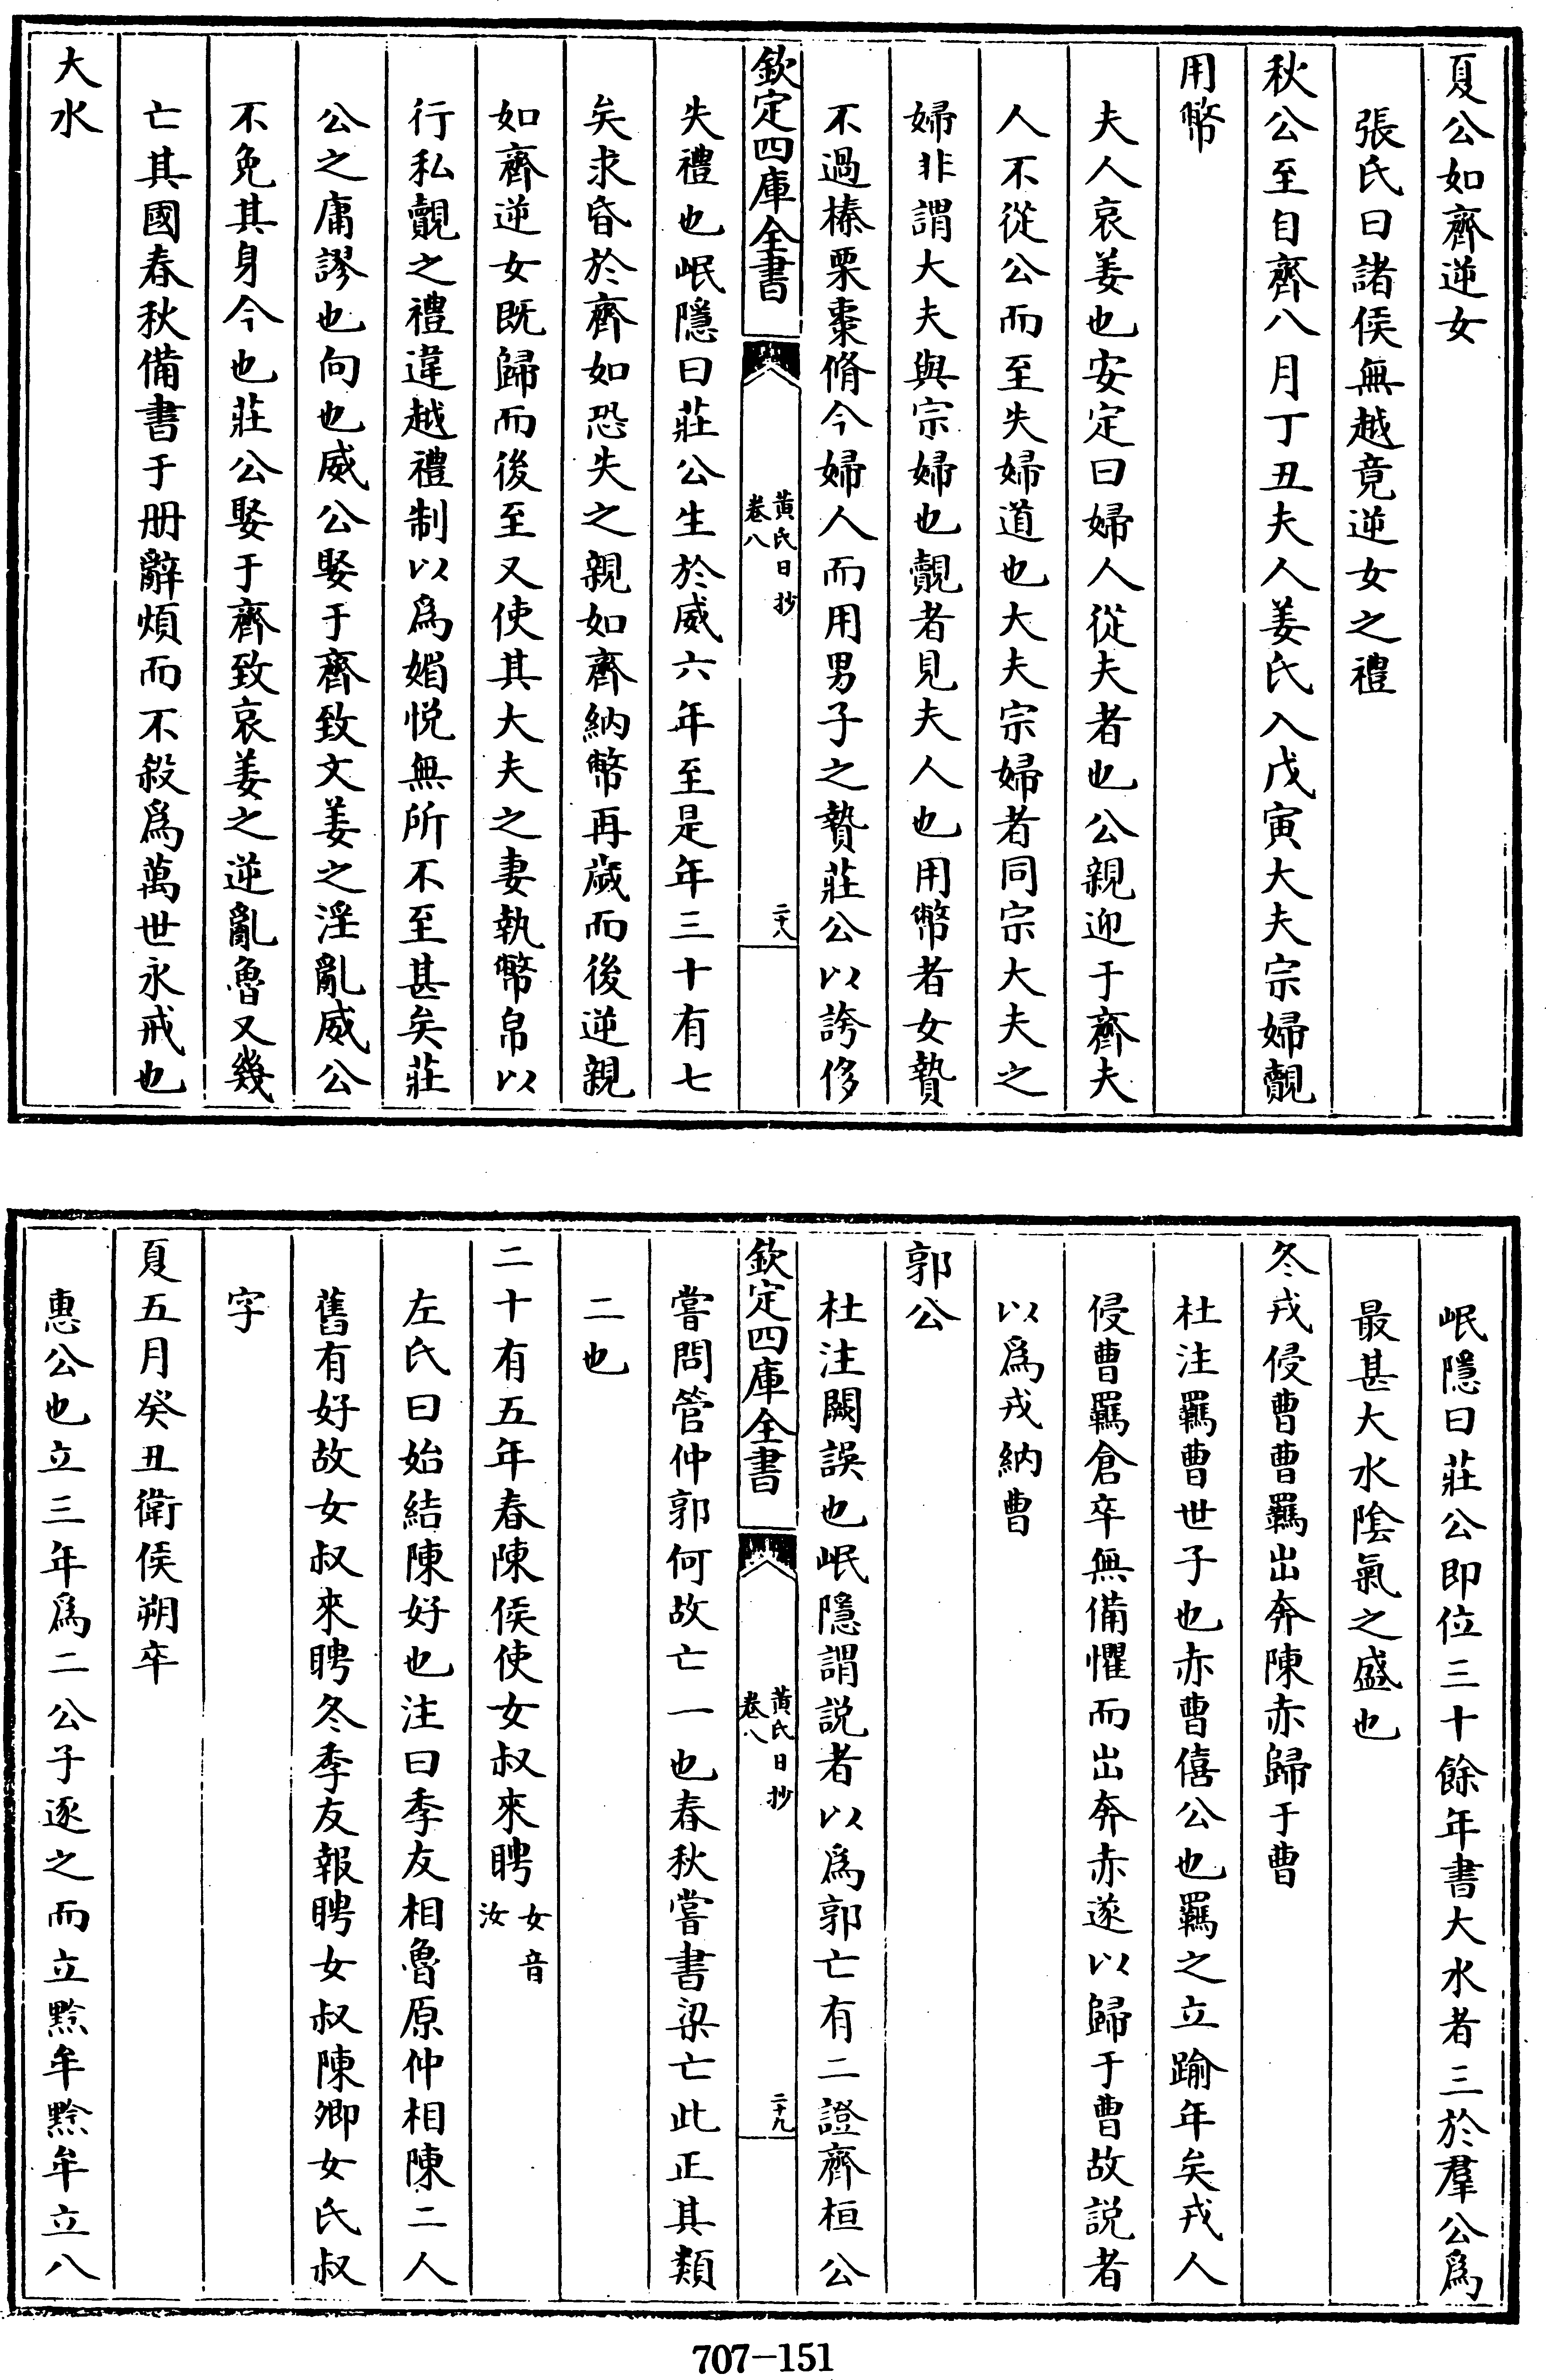 夏公如齊逆女
張氏曰諸侯無越竟逆女之禮
秋公至自齊八月丁丑夫人姜氏入戊寅大夫宗婦覿
用幣
夫人哀姜也安定曰婦人從夫者也公親迎于齊夫
人不從公而至失婦道也大夫宗婦者同宗大夫之
婦非謂大夫與宗婦也覿者見夫人也用幣者女贄
不過榛栗棗脩今婦人而用男子之贄莊公以誇侈
欽定四庫全書
黃氏日抄
卷八
二十八
失禮也岷隱曰莊公生於威六年至是年三十有七
矣求昏於齊如恐失之親如齊納幣再歲而後逆親
如齊逆女既歸而後至又使其大夫之妻執幣帛以
行私覿之禮違越禮制以爲媚悅無所不至甚矣莊
公之庸謬也向也威公娶于齊致文姜之淫亂威公
不免其身今也莊公娶于齊致哀姜之逆亂魯又幾
亡其國春秋備書于册辭煩而不殺爲萬世永戒也
大水
岷隱曰莊公即位三十餘年書大水者三於羣公爲
最甚大水陰氣之盛也
冬戎侵曹曹羈出奔陳赤歸于曹
杜注羈曹世子也赤曹僖公也羈之立踰年矣戎人
侵曹羈倉卒無備懼而出奔赤遂以歸于曹故説者
以爲戎納曹
郭公
杜注闕誤也岷隱謂説者以爲郭亡有二證齊桓公
欽定四庫全書
黃氏日抄
卷八
二十九
嘗問管仲郭何故亡一也春秋嘗書梁亡此正其類
二也
二十有五年春陳侯使女叔來聘女音汝
左氏曰始結陳好也注曰季友相魯原仲相陳二人
舊有好故女叔來聘冬季友報聘女叔陳卿女氏叔
字
夏五月癸丑衛侯朔卒
惠公也立三年爲二公子逐之而立黔牟黔牟立八
707-151